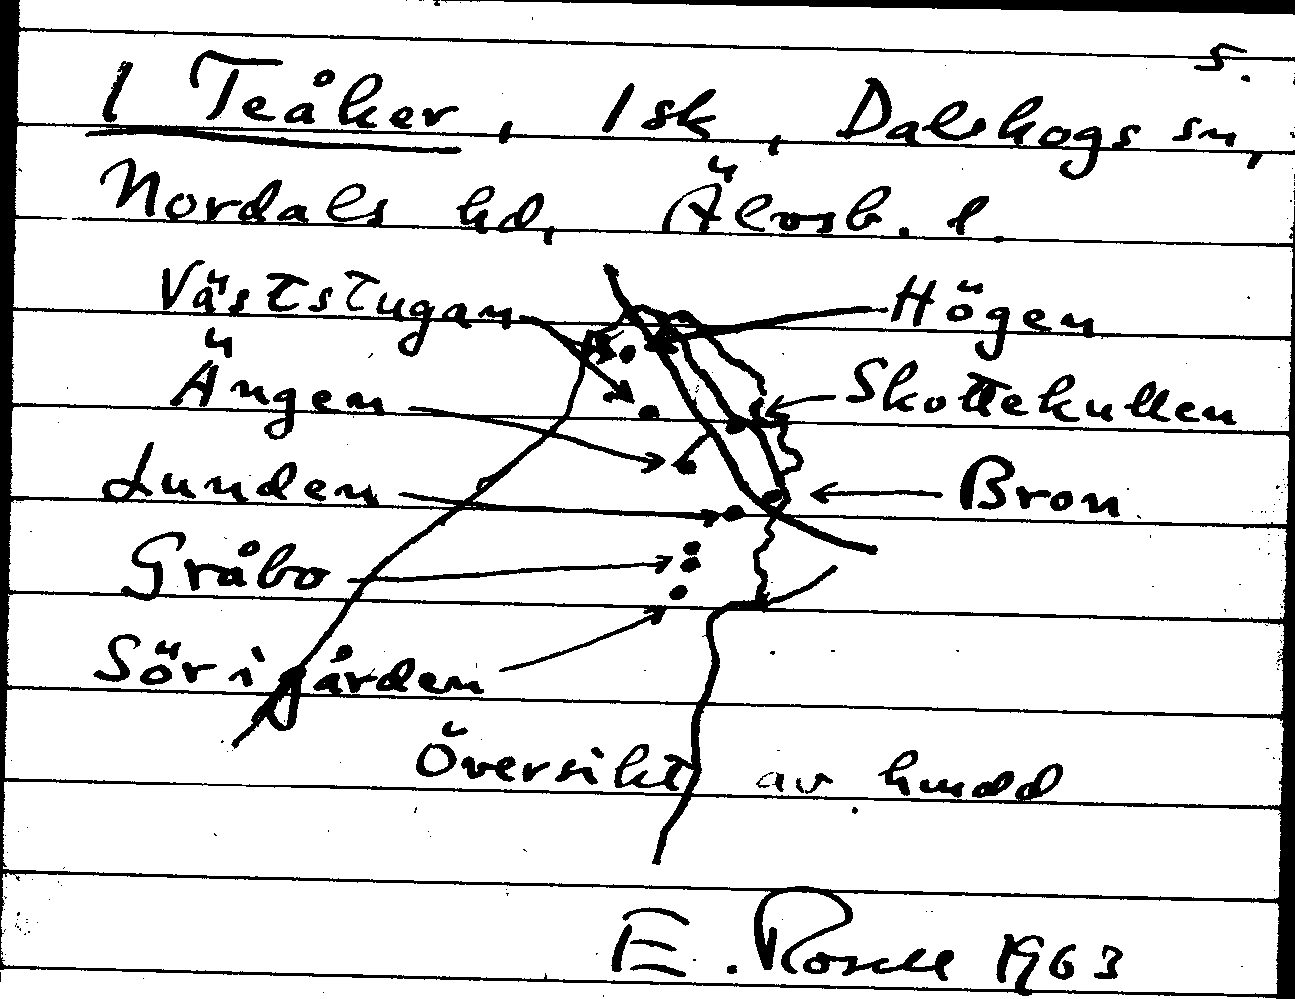 s.
1 Teåker, 1 sk, Dalskogs sn,
Nordals hd, Älvsb. l.
Väststugan
Högen
Ängen
Skottekullen
Lunden
Bron
Gråbo
Sörigården
Översikt av hmdd
E. Rosell 1963